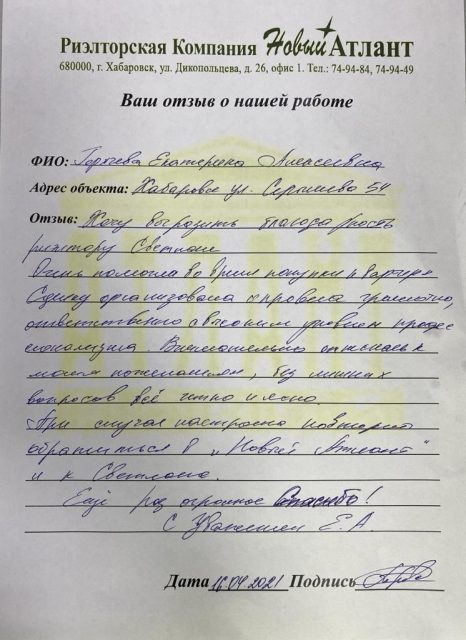 Риэлторская Компания Новый Атлант
680000, г. Хабаровск, ул. Дикопольцева, д. 26, офис 1. Тел.: 74-94-84, 74-94-49
Ваш отзыв о нашей работе
ФИО: Екатерина Алексеевна
Адрес объекта: Хабаровск ул. 54
Отзыв: Хочу выразить благодарность
риэлтору Светлане
Очень помогла во время покупки квартиры
Сделку организовала и провела грамотно,
ответственно с высоким уровнем профес
сионализма Внимательно отнеслась к
моим пожеланиям, без лишних
вопросов всё чётко и ясно.
При случае настроена повторно
обратиться в „Новый Атлант"
и к Светлане.
Ещё раз огромное Спасибо!
С Уважением Е.А
Дата 16.04.2021 Подпись